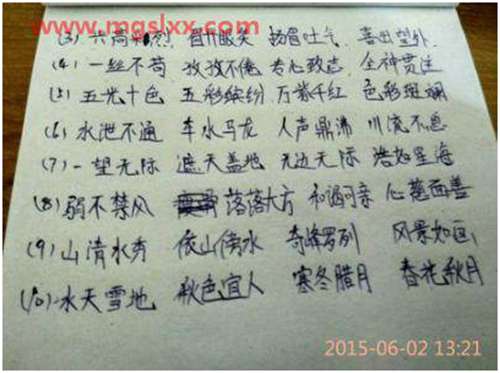 www.mgslxx.com
(3) 眉开眼笑 扬眉吐气 喜出望外
(4) 一丝不苟 孜孜不倦 专心致志 全神贯注
(5) 五光十色 五彩缤纷 万紫千红 色彩斑斓
(6) 水泄不通 车水马龙 人声鼎沸 川流不息
(7) 一望无际 遮天盖地 无边无际 浩如星海
(8) 弱不禁风 落落大方 和谒可亲 心慈面善
(9) 山清水秀 依山傍水 奇峰罗列 风景如画
(10) 水天雪地 秋色宜人 寒冬腊月 春花秋月
2015-06-02 13:21